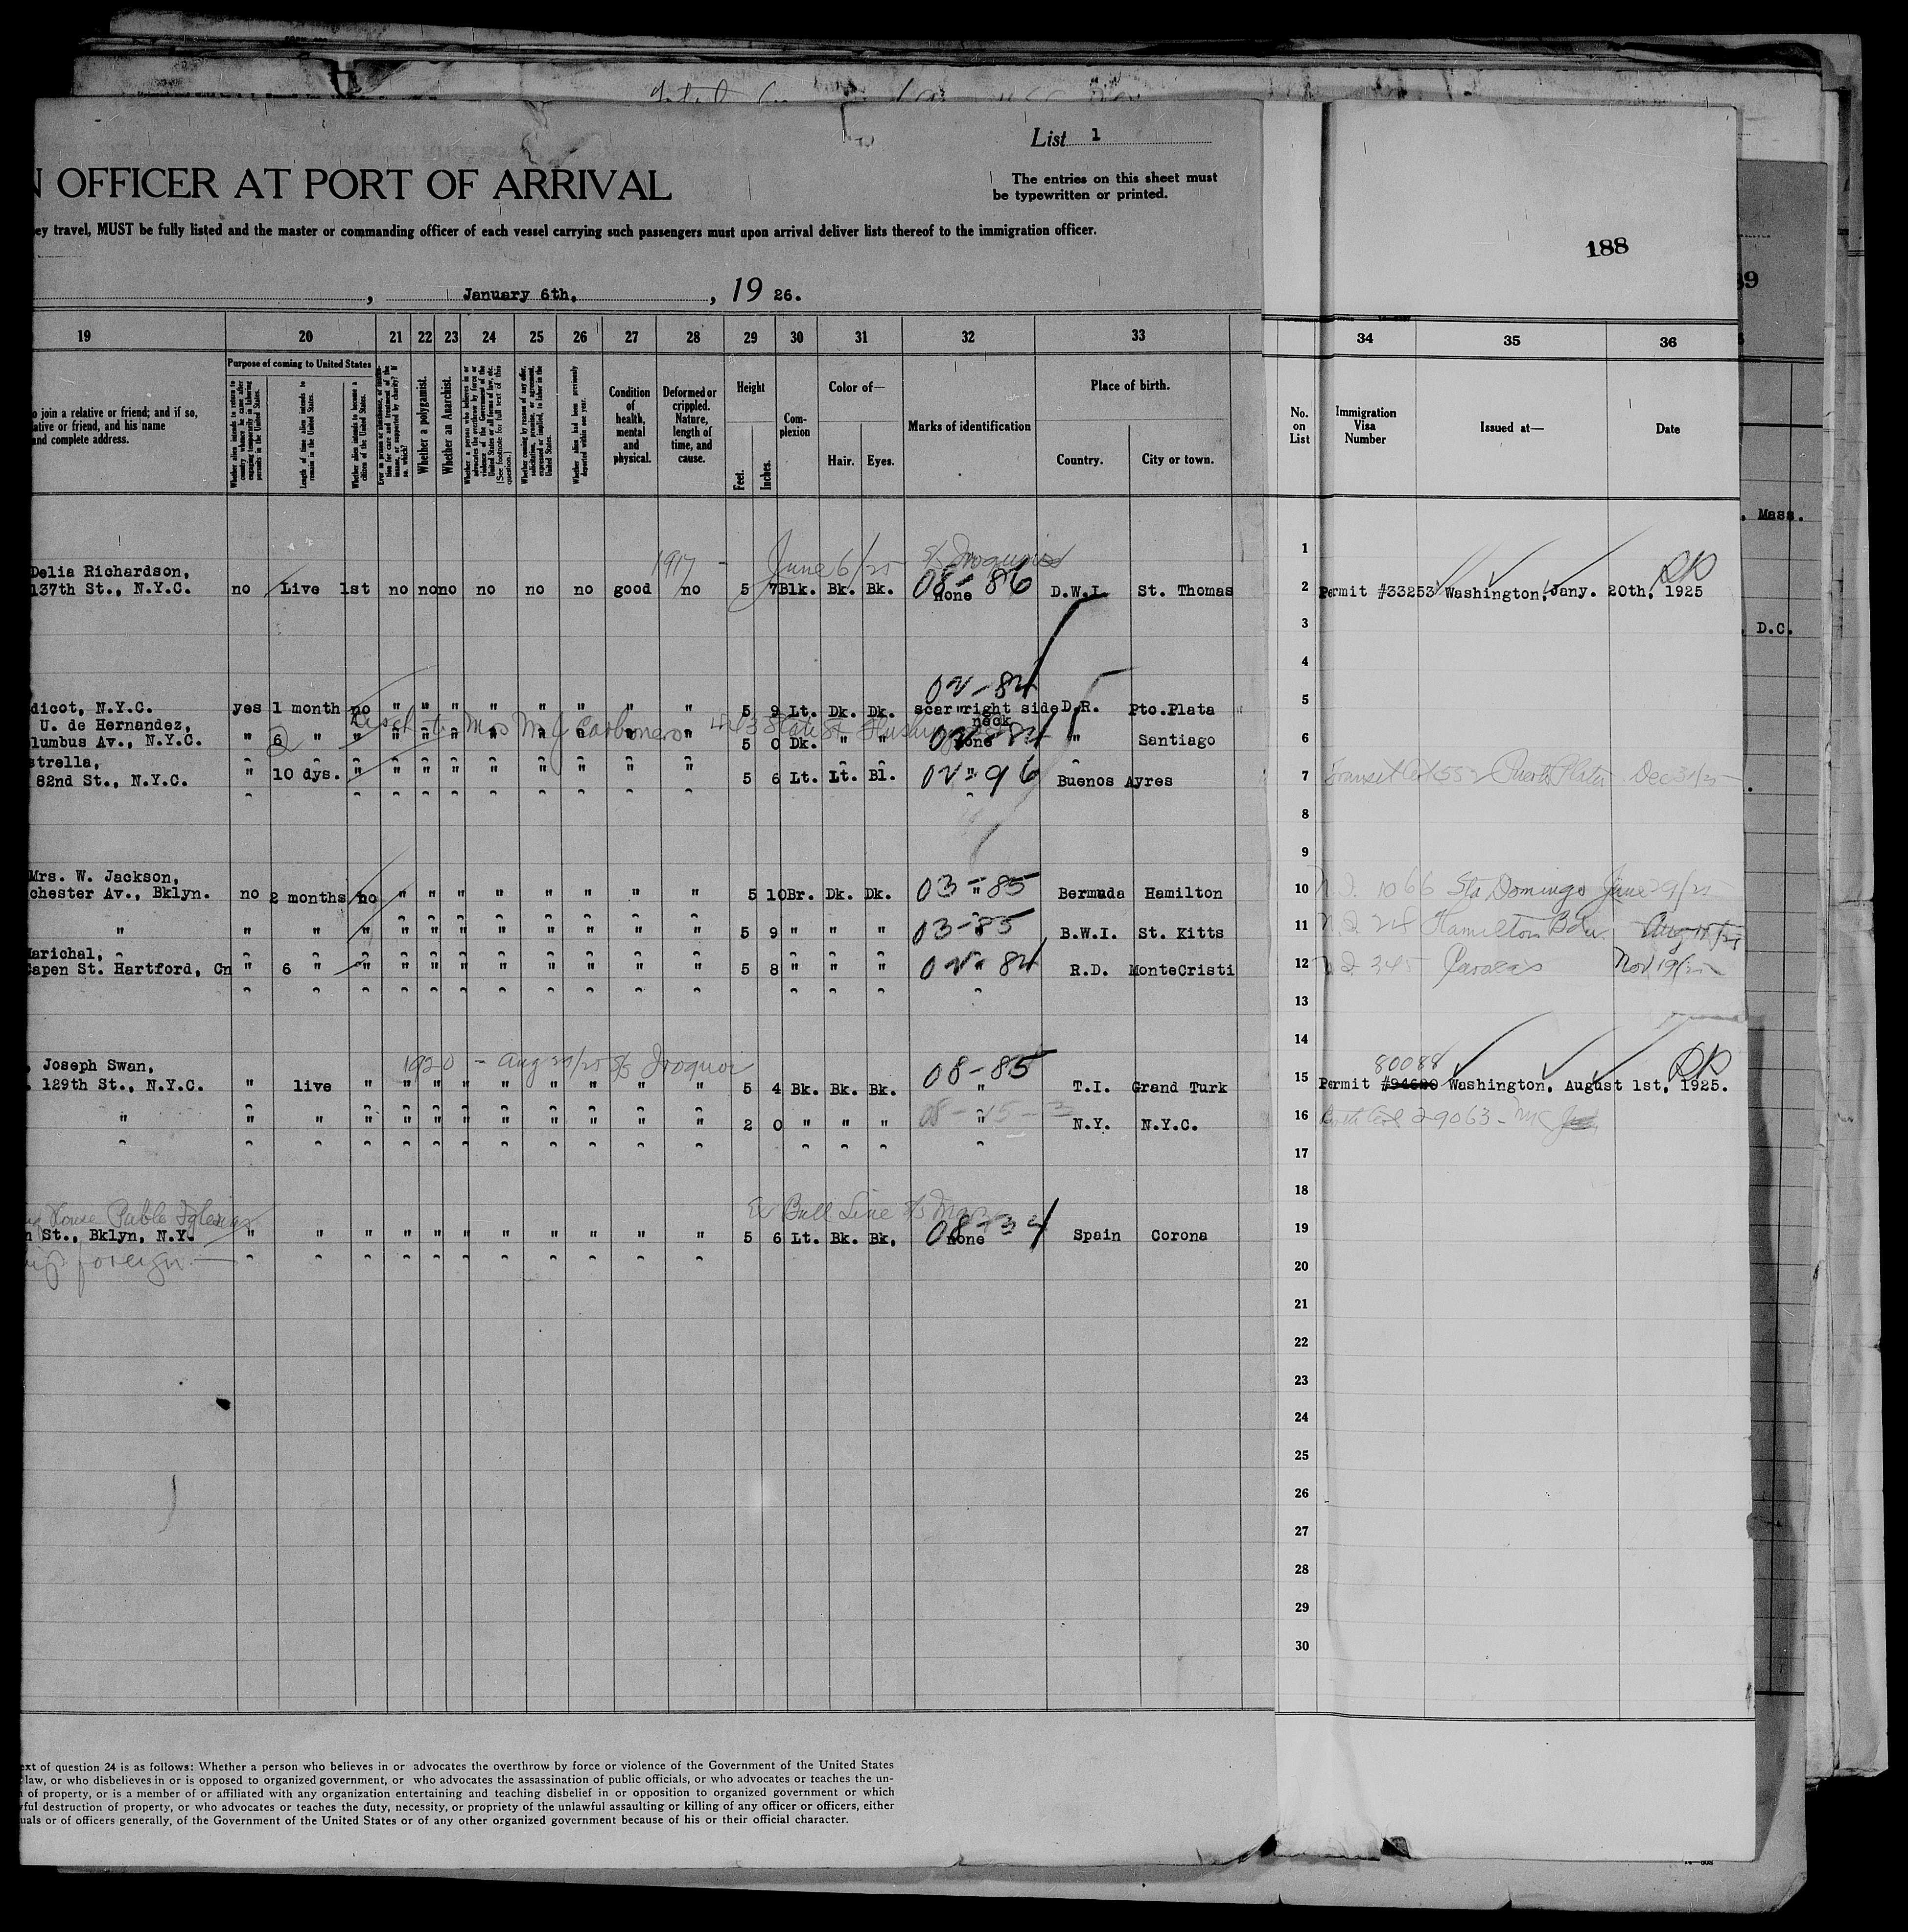 List 1
N OFFICER AT PORT OF ARRIVAL
The entries on this sheet must
be typewritten or printed.
ey travel, MUST be fully listed and the master or commanding officer of each vessel carrying such passengers must upon arrival deliver lists thereof to the immigration officer.
188
, January 6th, , 19 26.
19 20 21 22 23 24 25 26 27 28 29 30 31 32 33 34 35 36
o join a relative or friend; and if so,
lative or friend, and his name
and complete address.
Purpose of coming to United States
Whether alien intends to return to country whence he came after engaging temporarily in laboring pursuits in the United States.
Length of time alien intends to remain in the United States.
Whether alien intends to become a citizen of the United States.
Whether a polygamist.
Whether an Anarchist.
Whether a person who believes in or advocates the overthrow by force or violence of the Government of the United States or all forms of law, etc. (See footnote for full text of this question.)
Whether coming by reason of any offer, solicitation, promise, or agreement, expressed or implied, to labor in the United States.
Whether alien had been previously deported within one year.
Condition of health, mental and physical.
Deformed or crippled. Nature, length of time, and cause.
Height
Feet. Inches.
Com-plexion
Color of—
Hair. Eyes.
Marks of identification
Place of birth.
Country. City or town.
No. on List
Immigration Visa Number
Issued at—
Date
, Mass.
1
1917 - June 6/25 - S/S Iroquois
Delia Richardson,
137th St., N.Y.C. no Live 1st no no no no no no good no 5 7 Blk. Bk. Bk. 08-86 none D.W.I. St. Thomas 2 Permit #33253 Washington, Jany. 20th, 1925
3 , D.C.
4
02-84
dicot, N.Y.C. yes 1 month no " " " " " " " " 5 9 Lt. Dk. Dk. scar right side neck D.R. Pto.Plata 5
U. de Hernandez,
lumbus Av., N.Y.C. " 6 " " " " " " " " " " 5 0 Dk. " " none " Santiago 6
strella,
82nd St., N.Y.C. " 10 dys. " " " " " " " " " 5 6 Lt. Lt. Bl. 02-96 " Buenos Ayres 7
8
9
Mrs. W. Jackson,
chester Av., Bklyn. no 2 months no " " " " " " " " 5 10 Br. Dk. Dk. 03-85 " Bermuda Hamilton 10 1066 Sto Domingo June 29/25
" " " " " " " " " " " " 5 9 " " " 03-85 B.W.I. St. Kitts 11 Hamilton Bda
Marichal,
Capen St. Hartford, Cn " 6 " " " " " " " " " " 5 8 " " " 02-84 R.D. MonteCristi 12 345 Nov 19/25
13
14
1920 - Aug 29/25 S/S Iroquois
80088
Joseph Swan,
129th St., N.Y.C. " live " " " " " " " " " 5 4 Bk. Bk. Bk. 08-85 " T.I. Grand Turk 15 Permit Washington, August 1st, 1925.
" " " " " " " " " " " " 2 0 " " " " N.Y. N.Y.C. 16 29063
17
18
House Pablo Iglesias
St., Bklyn, N.Y. " " " " " " " " " " " 5 6 Lt. Bk. Bk. none Spain Corona 19
foreign
20
21
22
23
24
25
26
27
28
29
30
ext of question 24 is as follows: Whether a person who believes in or advocates the overthrow by force or violence of the Government of the United States
law, or who disbelieves in or is opposed to organized government, or who advocates the assassination of public officials, or who advocates or teaches the un-
of property, or is a member of or affiliated with any organization entertaining and teaching disbelief in or opposition to organized government or which
ful destruction of property, or who advocates or teaches the duty, necessity, or propriety of the unlawful assaulting or killing of any officer or officers, either
uals or of officers generally, of the Government of the United States or of any other organized government because of his or their official character.